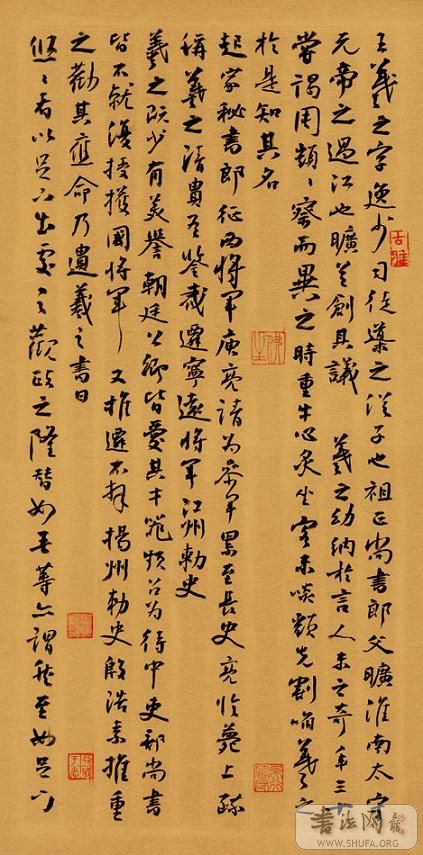 王羲之字逸少司徒導之從子也祖正尚書郎父曠淮南太守
元帝之過江也曠首創其議 羲之幼訥於言人未之奇年十三
嘗謁周顗顗察而異之時重牛心炙坐客未啖顗先割啗羲之
於是知其名
起家秘書郎征西將軍庾亮請為參軍累至長史亮臨薨上疏
稱羲之清貴有鑒裁遷寧遠將軍江州刺史
羲之既少有美譽朝廷公卿皆愛其才器頻召為侍中吏部尚書
皆不就復授護國將軍 又推遷不拜揚州刺史殷浩素推重
之勸其應命乃遺羲之書曰
悠悠者以足下出處 觀政之隆替如吾等亦謂 至如足下
書法网
WWW.SHUFA.ORG